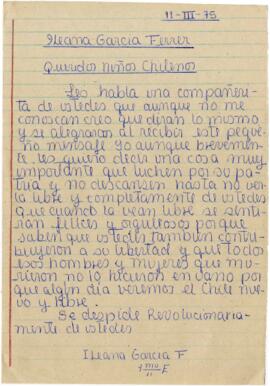 11-III-75
Ileana García Ferrer
Queridos niños Chilenos
Les habla una compañeri-
ta de ustedes que aunque no me
conoscan creo que diran lo mismo
y se alegraran al recibir este peque
ño mensaje yo aunque brevemen-
te les quiero decir una cosa muy
importante que luchen por su pa-
tria y no descansen hasta no ver
la libre y completamente de ustedes
que cuando la vean libre se senti-
rian felices y orgullosos porque
saben que ustedes tambien contri-
buyeron a su libertad y que todos
esos hombres y mujeres que mu-
rieron no lo hicieron en vano por
que algun dia veremos el Chile nue
vo y libre.
Se despide Revolucionaria-
mente de ustedes
Ileana García F